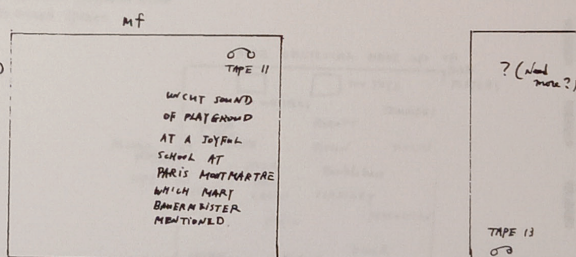 mf
TAPE 11
UNCUT SOUND
OF PLAYGROUD
AT A JOYFUL
SCHOOL AT
PARIS MONTMARTRE
WHICH MARY
BAUERMEISTER
MENTIONED.
? (Need
more?)
TAPE 13